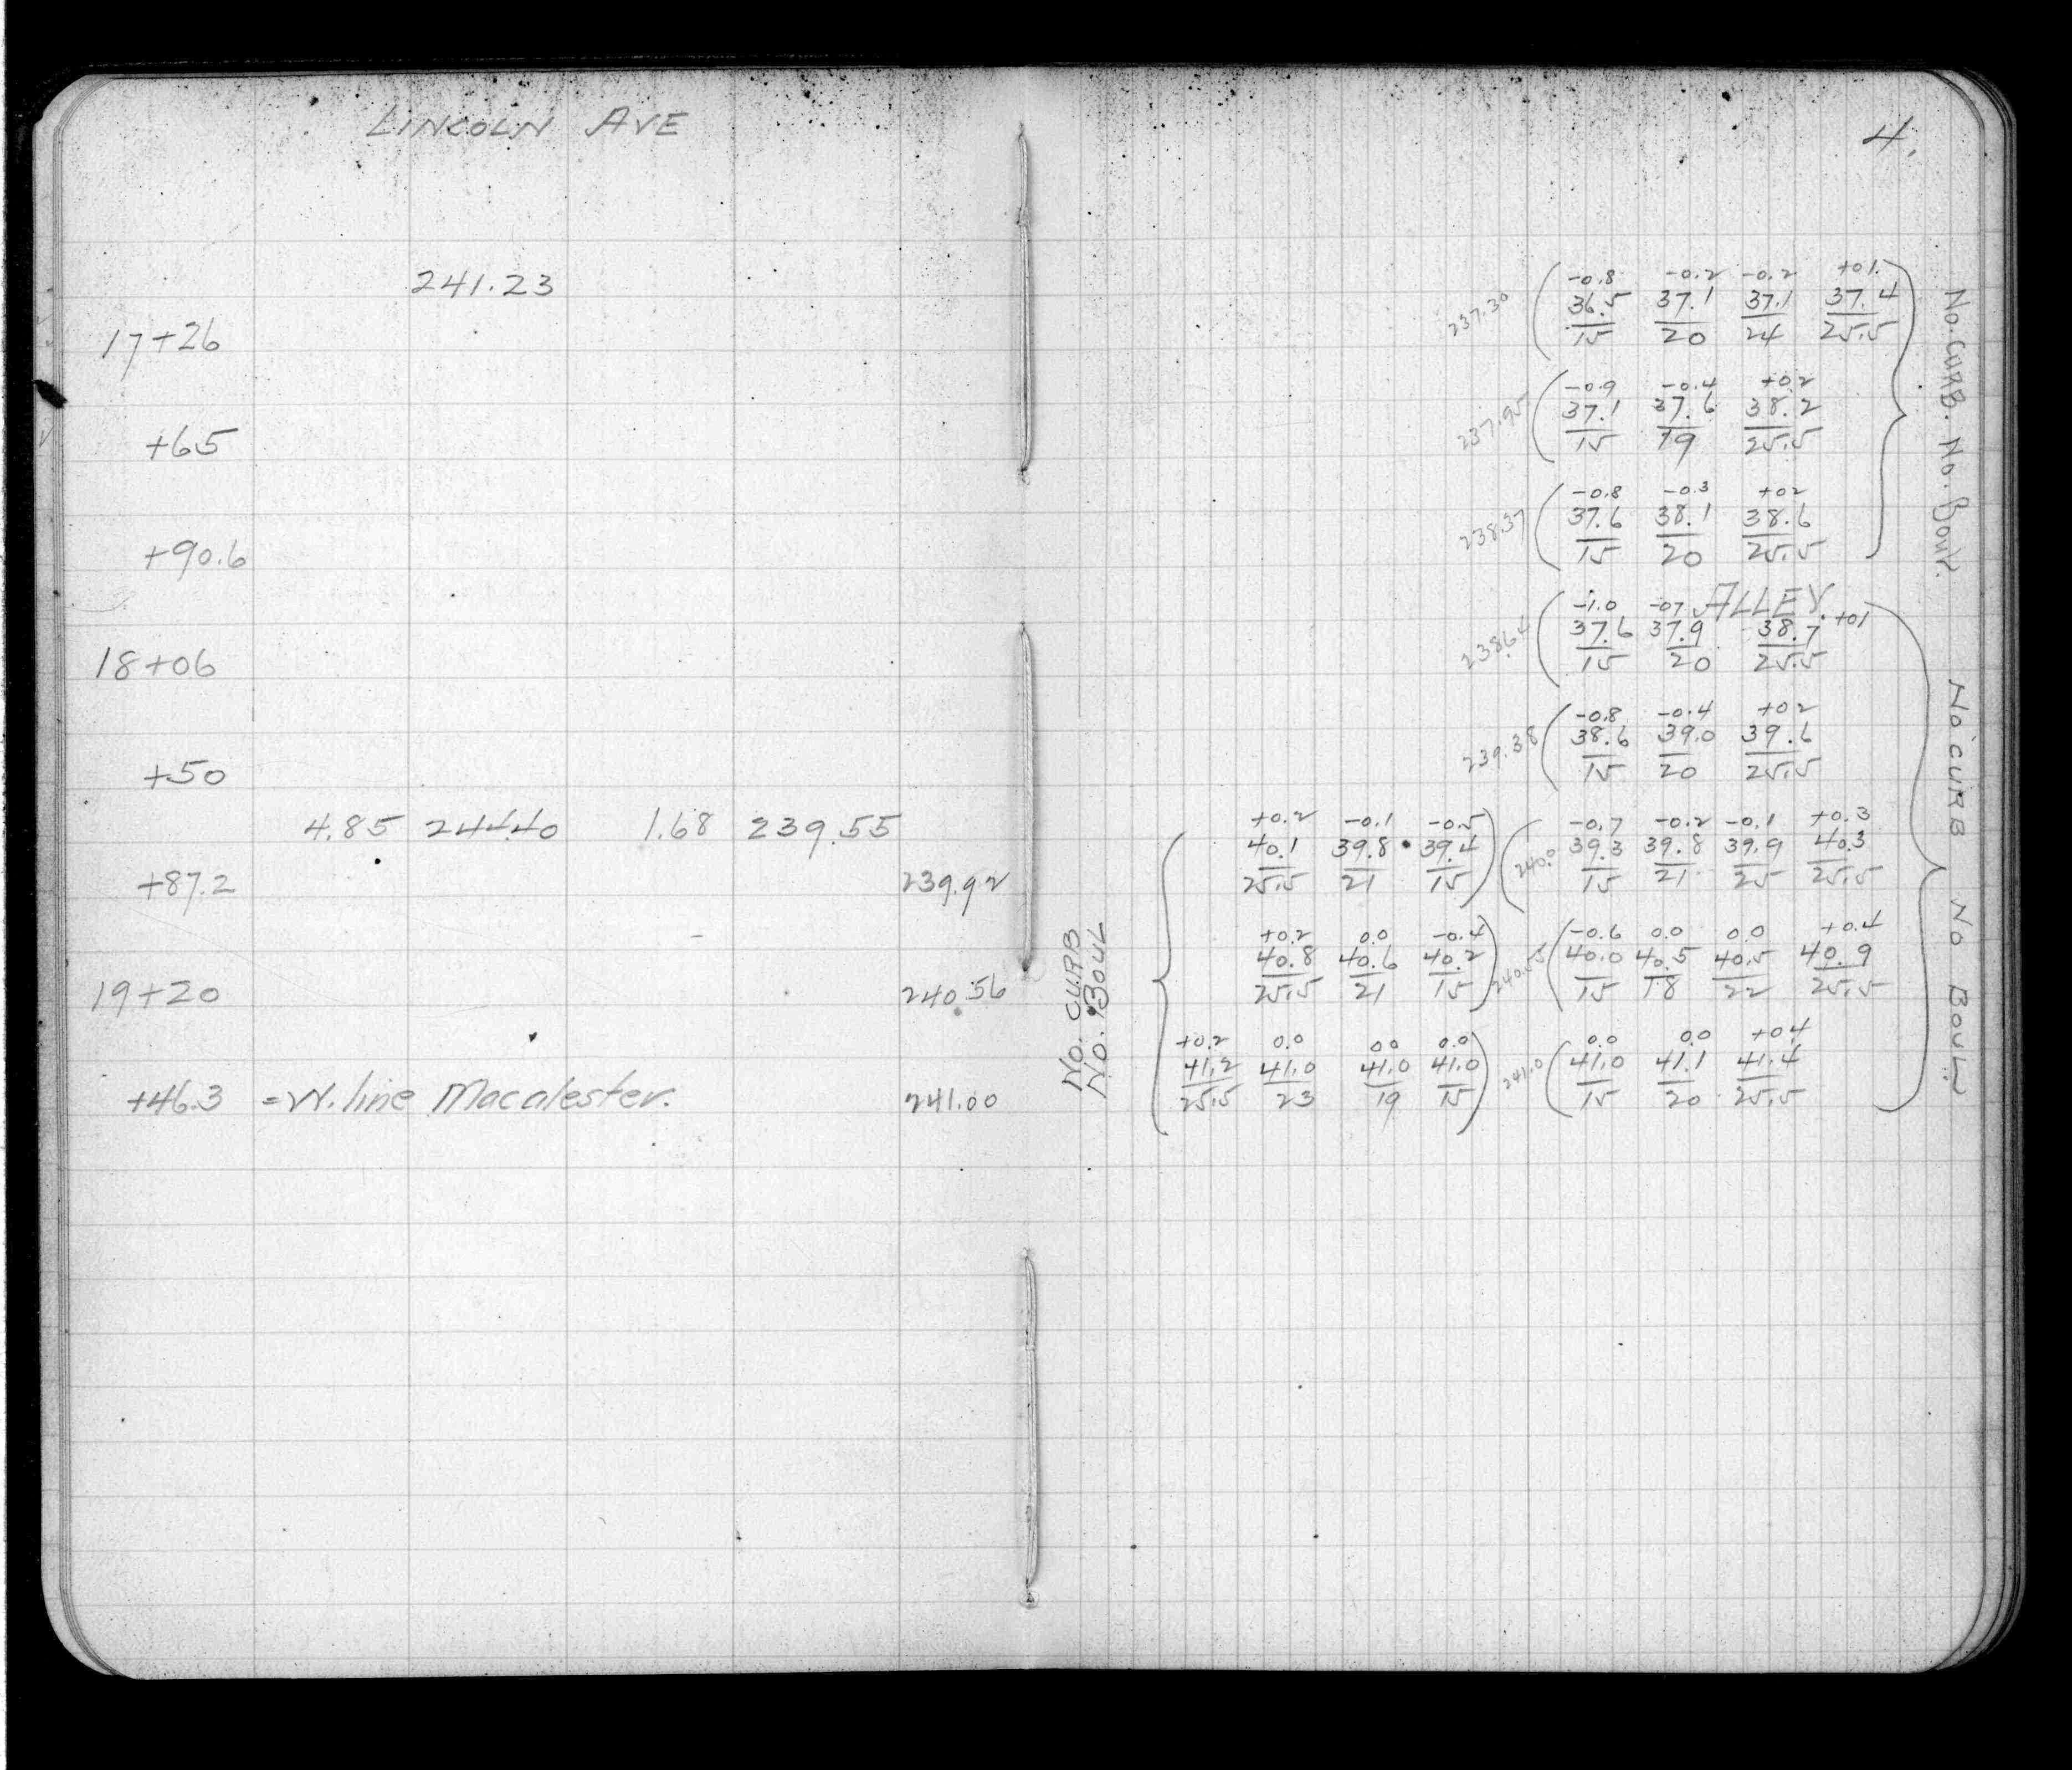 LINCOLN AVE
4.
241.23
17+26
+65
+90.6
18+06
+50
4.85 244.40 1.68 239.55
+87.2 239.92
19+20 240.56
+46.3 =W. line Macalester. 241.00
-0.8 -0.2 -0.2 +01.
237.30 36.5 37.1 37.1 37.4
15 20 24 25.5
-0.9 -0.4 +0.2
237.95 37.1 37.6 38.2
15 19 25.5
-0.8 -0.3 +02
238.37 37.6 38.1 38.6
15 20 25.5
No. CURB. No. Boul.
ALLEY.
-1.0 -07 +01
238.64 37.6 37.9 38.7
15 20 25.5
-0.8 -0.4 +02
239.38 38.6 39.0 39.6
15 20 25.5
+0.2 -0.1 -0.5 -0.7 -0.2 -0.1 +0.3
40.1 39.8 39.4 240.0 39.3 39.8 39.9 40.3
25.5 21 15 15 21 25 25.5
+0.2 0.0 -0.4 -0.6 0.0 0.0 +0.4
40.8 40.6 40.2 240.55 40.0 40.5 40.5 40.9
25.5 21 15 15 18 22 25.5
+0.2 0.0 00 0.0 0.0 0.0 +04
41.2 41.0 41.0 41.0 241.0 41.0 41.1 41.4
25.5 23 19 15 15 20 25.5
No. CURB
No. BOUL
No CURB No BOUL.